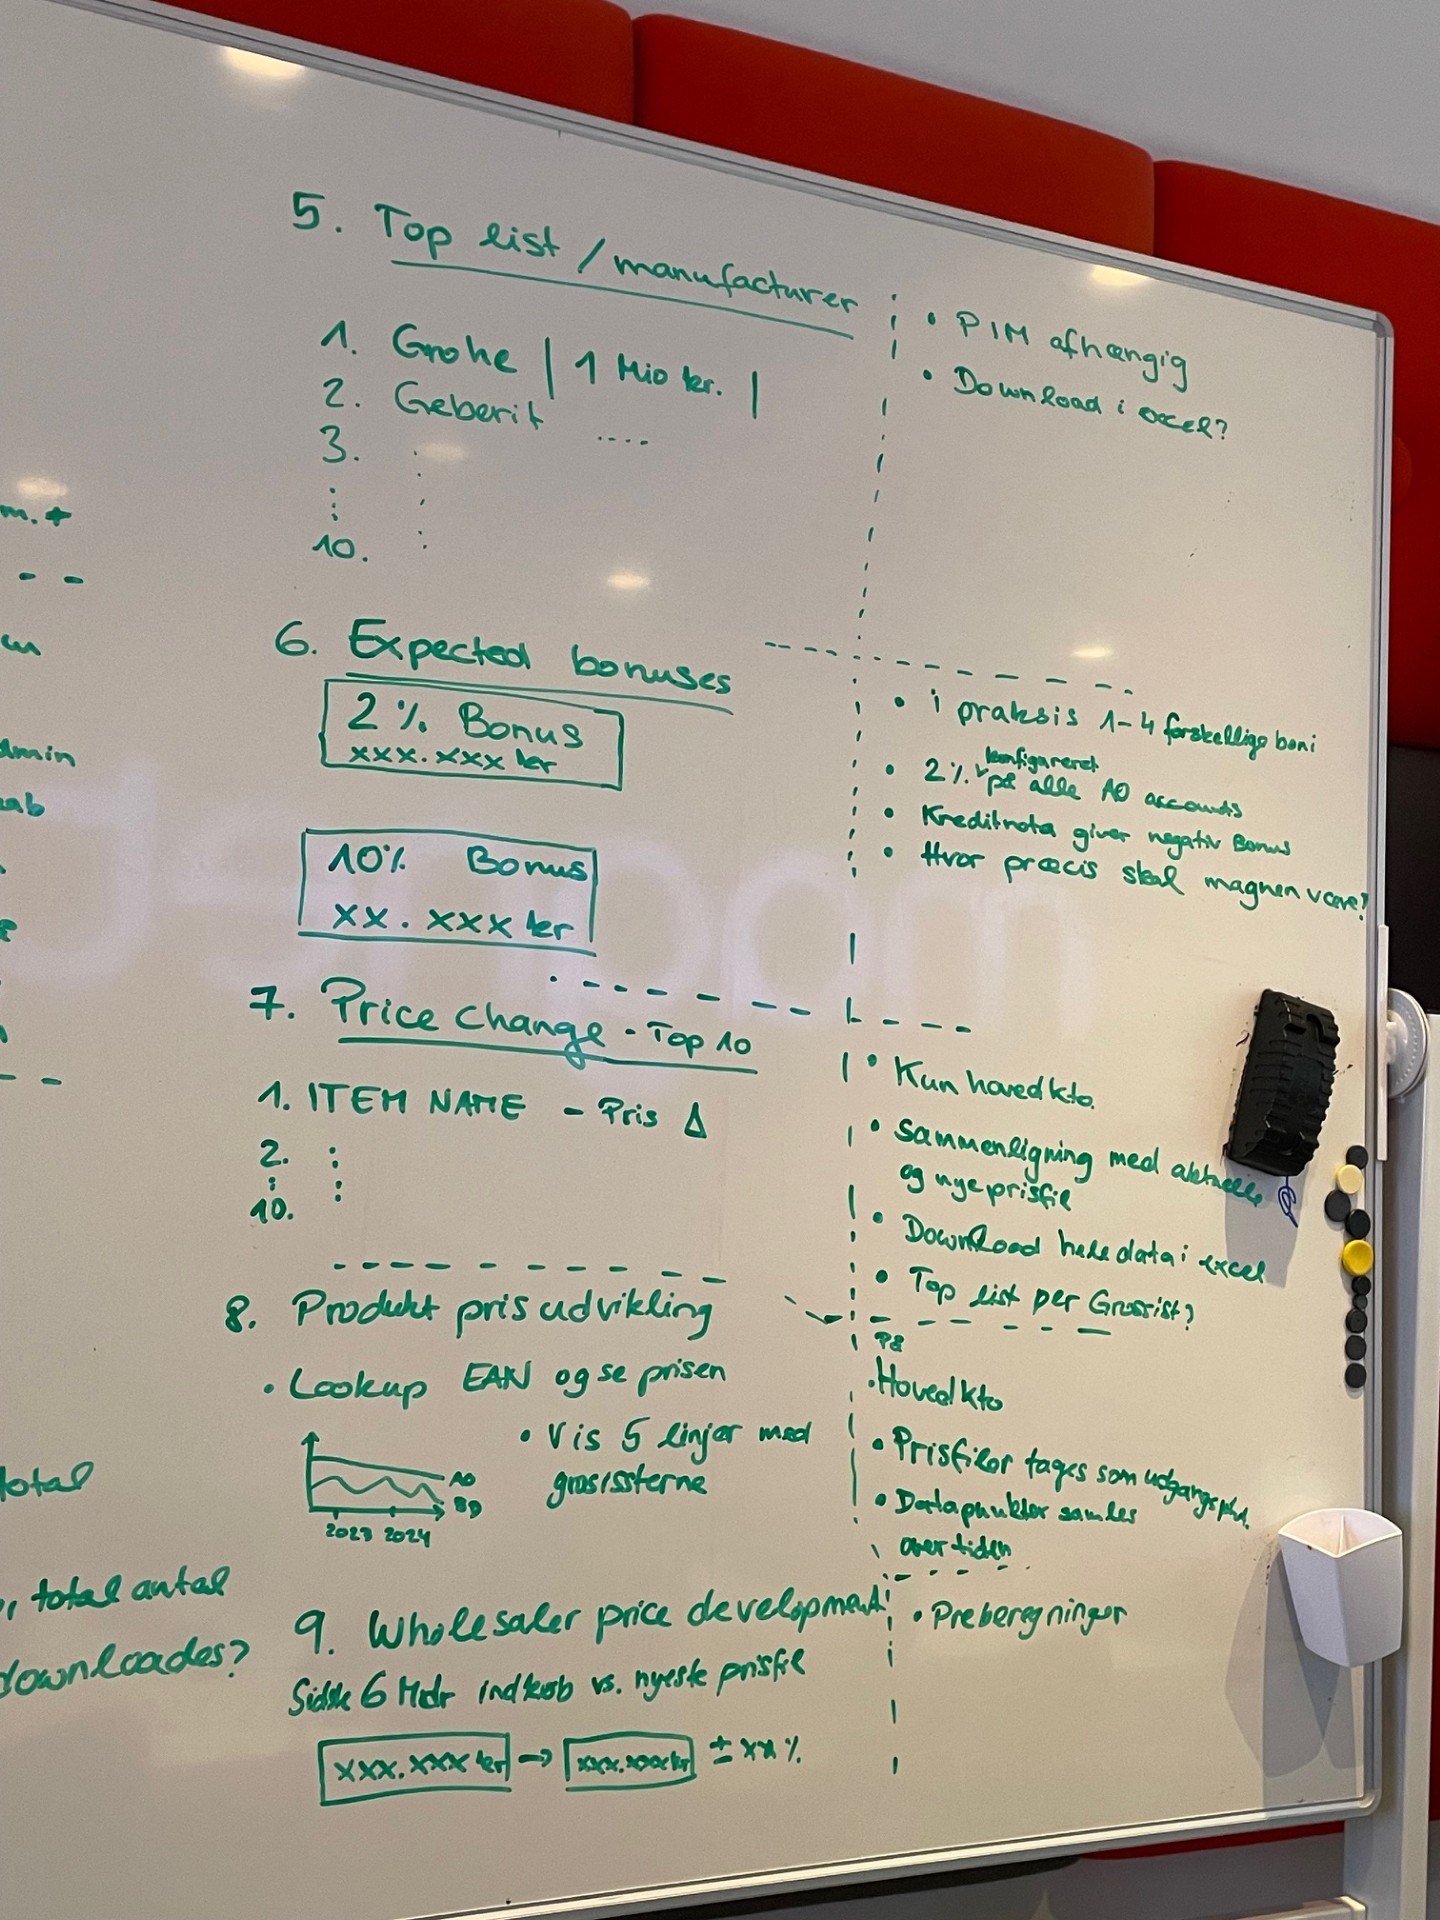 5. Top list / manufacturer
1. Grohe | 1 Mio kr. |
2. Geberit ....
3.
10.
• PIM afhængig
• Download i excel?
6. Expected bonuses
2% Bonus
xxx.xxx kr
10% Bonus
xx.xxx kr
• i praksis 1-4 forskellige boni
konfigureret
• 2% på alle AO accounts
• Kreditnota giver negativ Bonus
• Hvor præcis skal magnen være?
7. Price change - Top 10
1. ITEM NAME - Pris Δ
2.
10.
• Kun hovedkto.
• Sammenligning med aktuelle
og nye prisfil
• Download hele data i excel
• Top list per Grossist?
8. Produkt pris udvikling
• Lookup EAN og se prisen
• Vis 5 linjer med
grosissterne
AO
BD
2023 2024
På
• Hovedkto
• Prisfiler tages som udgangspkt.
• Datapunkter samles
over tiden
9. Wholesaler price development
Sidste 6 Mdr indkøb vs. nyeste prisfil
xxx.xxx kr → xxx.xxx kr ± xx %
• Preberegninger
m. +
dmin
total
total antal
downloades?